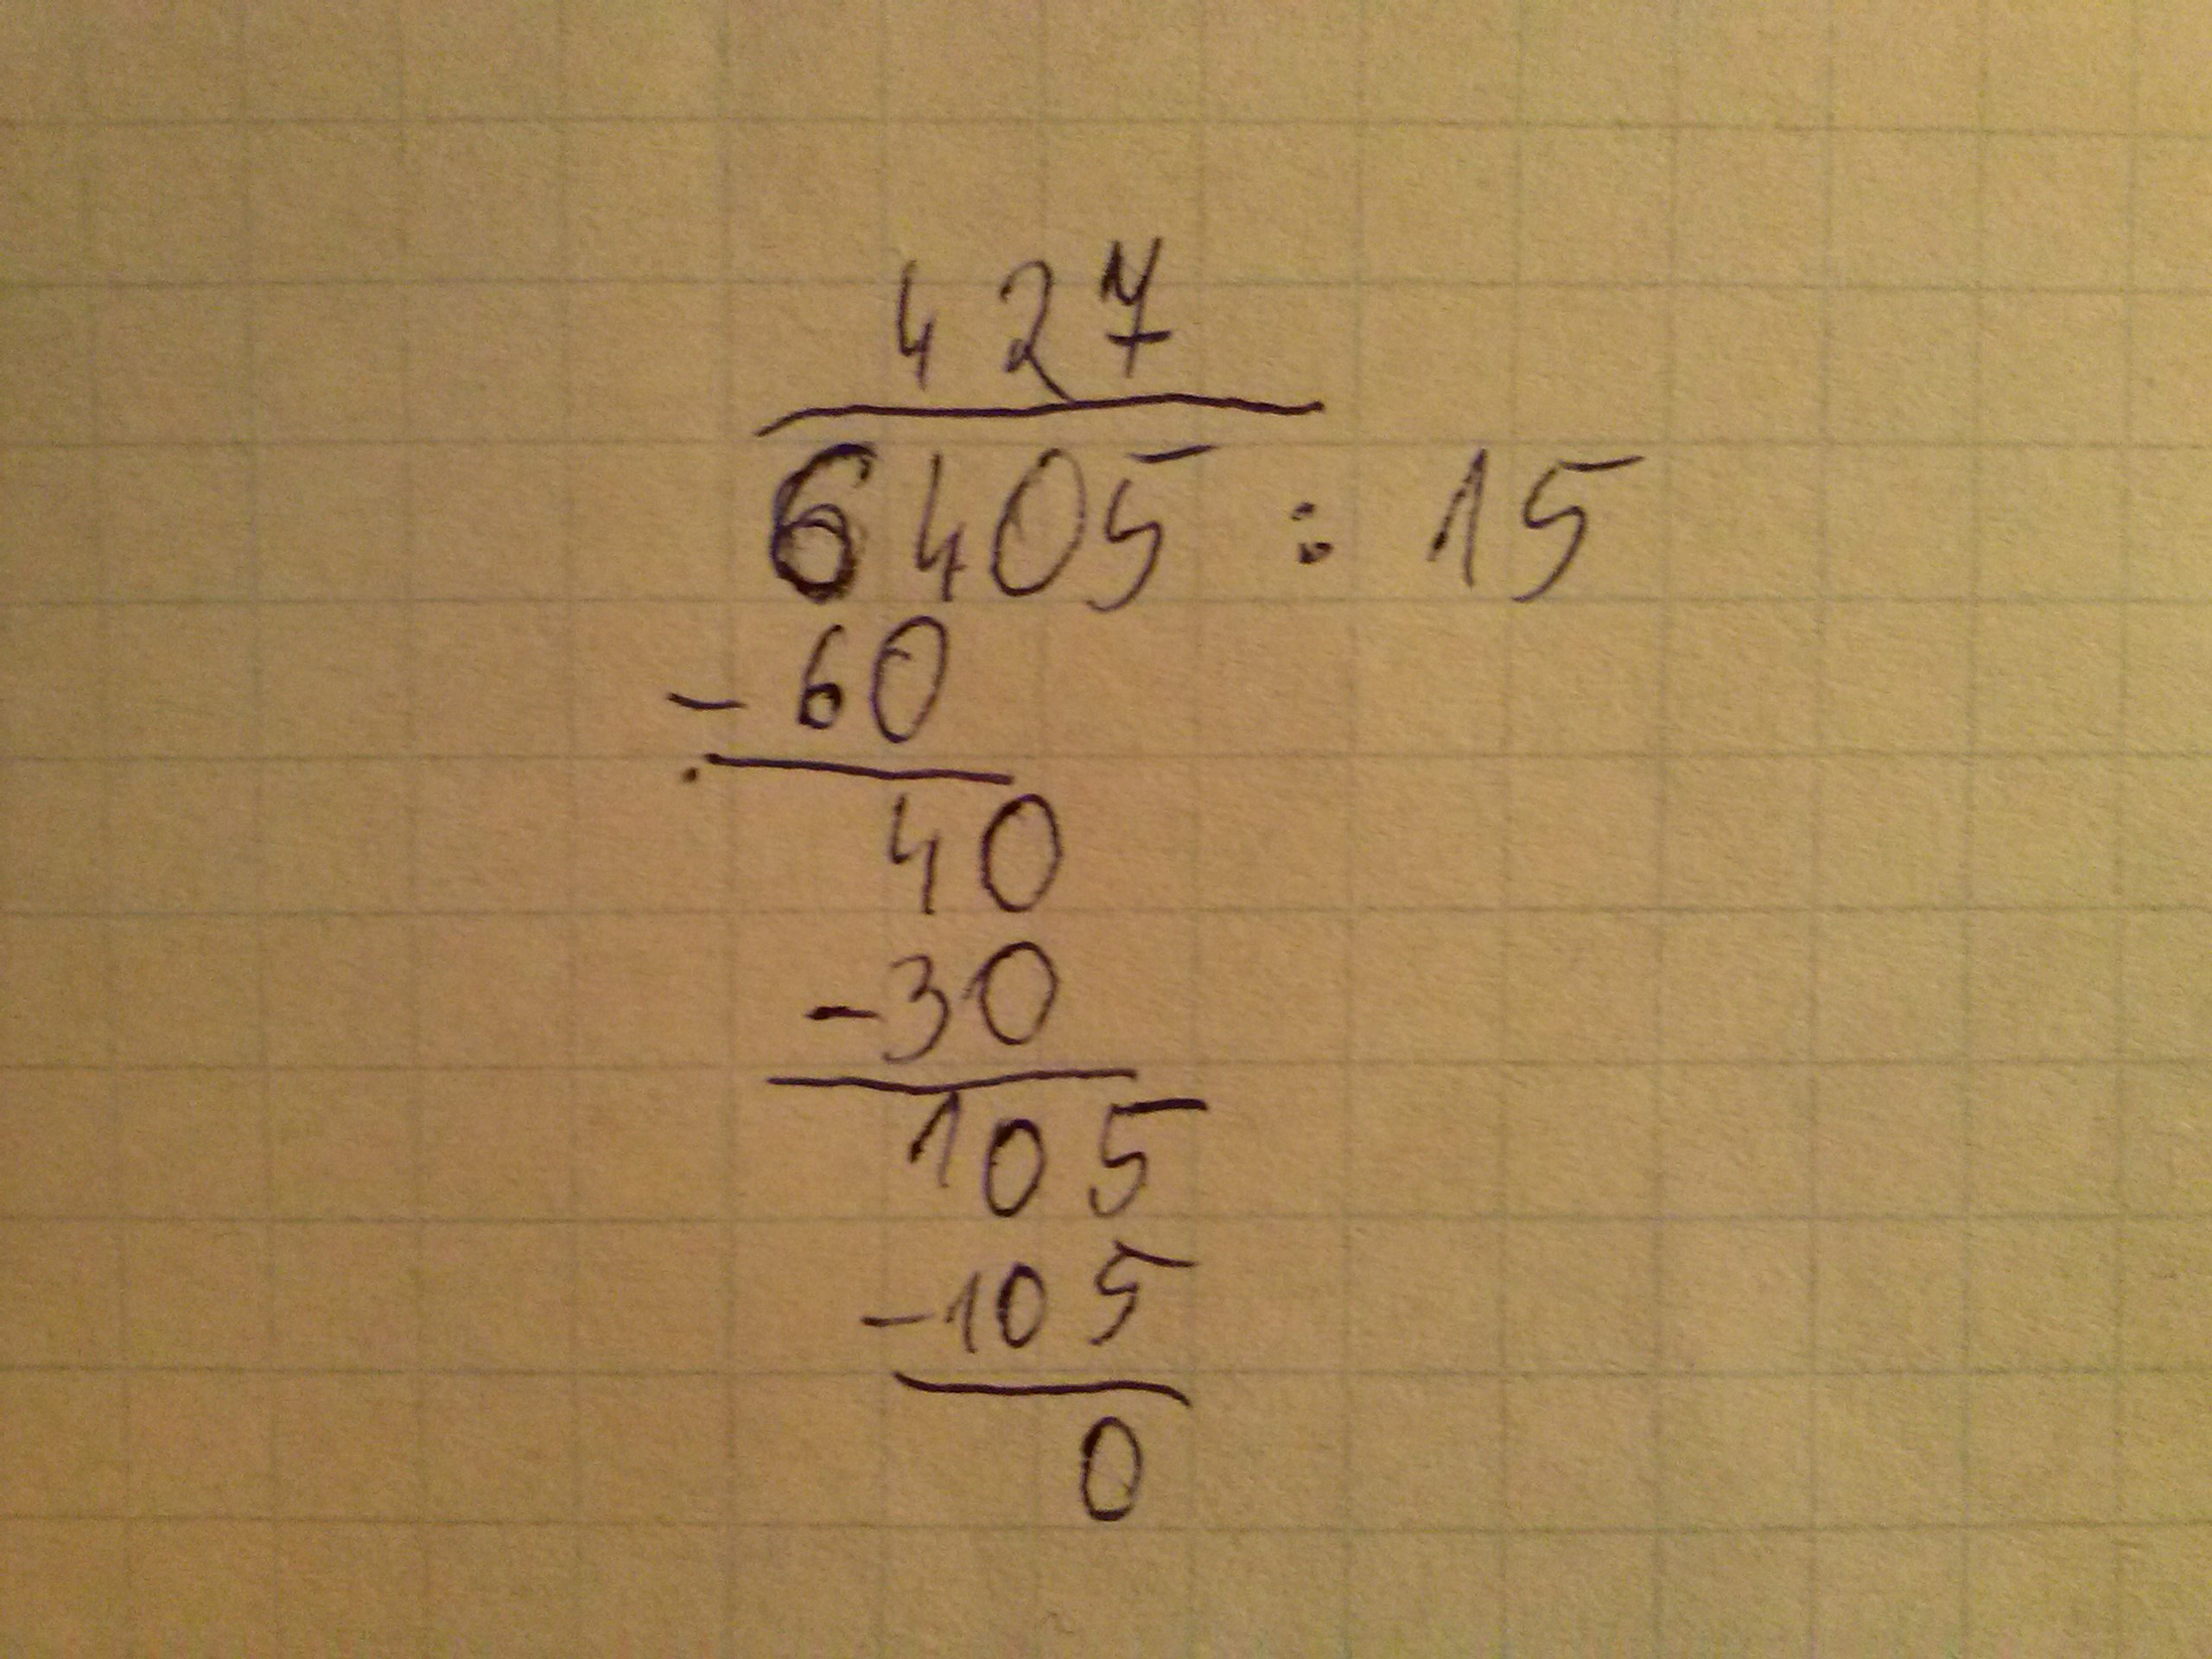 427
6405 : 15
-60
40
-30
105
-105
0